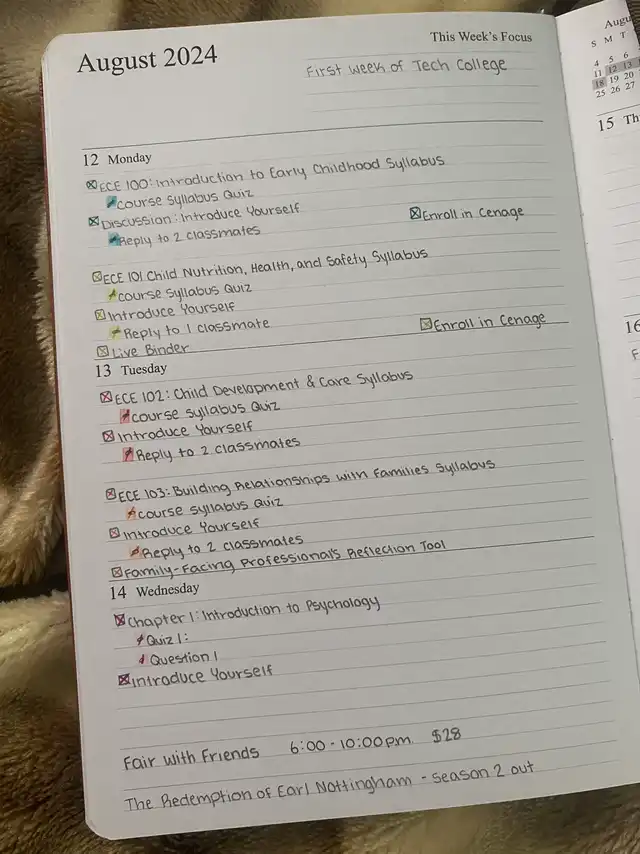 August 2024
This Week's Focus
First week of Tech College
12 Monday
ECE 100: Introduction to Early Childhood Syllabus
course Syllabus Quiz
Discussion: Introduce Yourself
Enroll in Cenage
Reply to 2 classmates
ECE 101 Child Nutrition, Health, and Safety Syllabus
course Syllabus Quiz
Introduce Yourself
Reply to 1 classmate
Enroll in Cenage
Live Binder
13 Tuesday
ECE 102: Child Development & Care Syllabus
course Syllabus Quiz
Introduce Yourself
Reply to 2 classmates
ECE 103: Building Relationships with Families Syllabus
course Syllabus Quiz
Introduce Yourself
Reply to 2 classmates
Family-Facing Professionals Reflection Tool
14 Wednesday
Chapter 1: Introduction to Psychology
Quiz 1:
Question 1
Introduce Yourself
Fair with Friends 6:00 - 10:00pm $28
The Redemption of Earl Nottingham - Season 2 out
Augu
S M T
4 5 6
11 12 13
18 19 20
25 26 27
15 Th
16
F